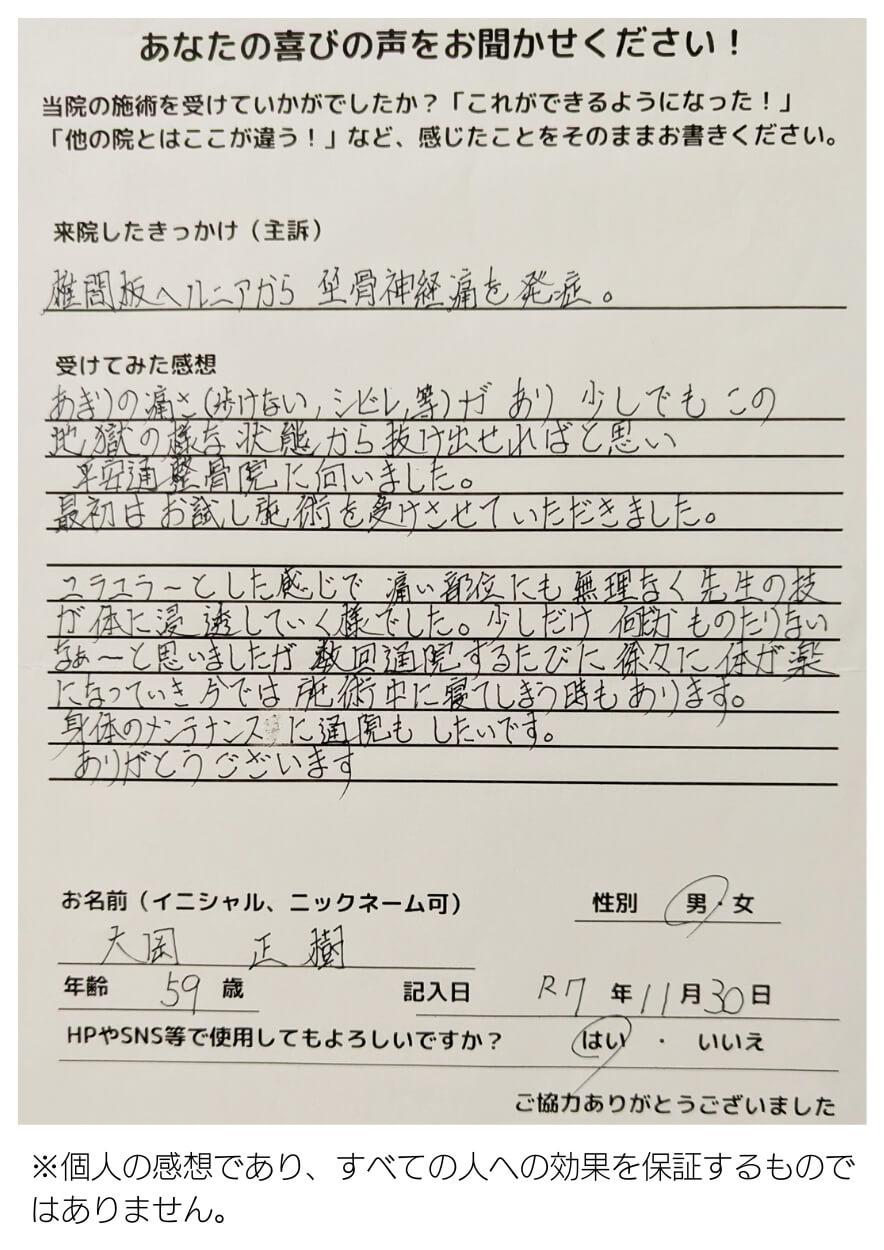 あなたの喜びの声をお聞かせください！
当院の施術を受けていかがでしたか？「これができるようになった！」
「他の院とはここが違う！」など、感じたことをそのままお書きください。
来院したきっかけ（主訴）
椎間板ヘルニアから 坐骨神経痛を発症。
受けてみた感想
あまりの痛さ(歩けない,シビレ,等)が あり 少しでも この
地獄の様な状態から抜け出せればと思い
平安通整骨院に伺いました。
最初は お試し施術を受けさせていただきました。
ユラユラ〜とした感じで 痛い部位にも 無理なく先生の技
が体に浸透していく様でした。少しだけ 何だか ものたりない
なぁ〜と思いましたが 数回通院するたびに 徐々に 体が楽
になっていき今では 施術中に寝てしまう時もあります。
身体のメンテナンスに通院も したいです。
ありがとうございます
お名前（イニシャル、ニックネーム可） 性別 男・女
大岡 正樹
年齢 59 歳 記入日 R7 年 11 月 30 日
HPやSNS等で使用してもよろしいですか？ はい ・ いいえ
ご協力ありがとうございました
※個人の感想であり、すべての人への効果を保証するもので
はありません。